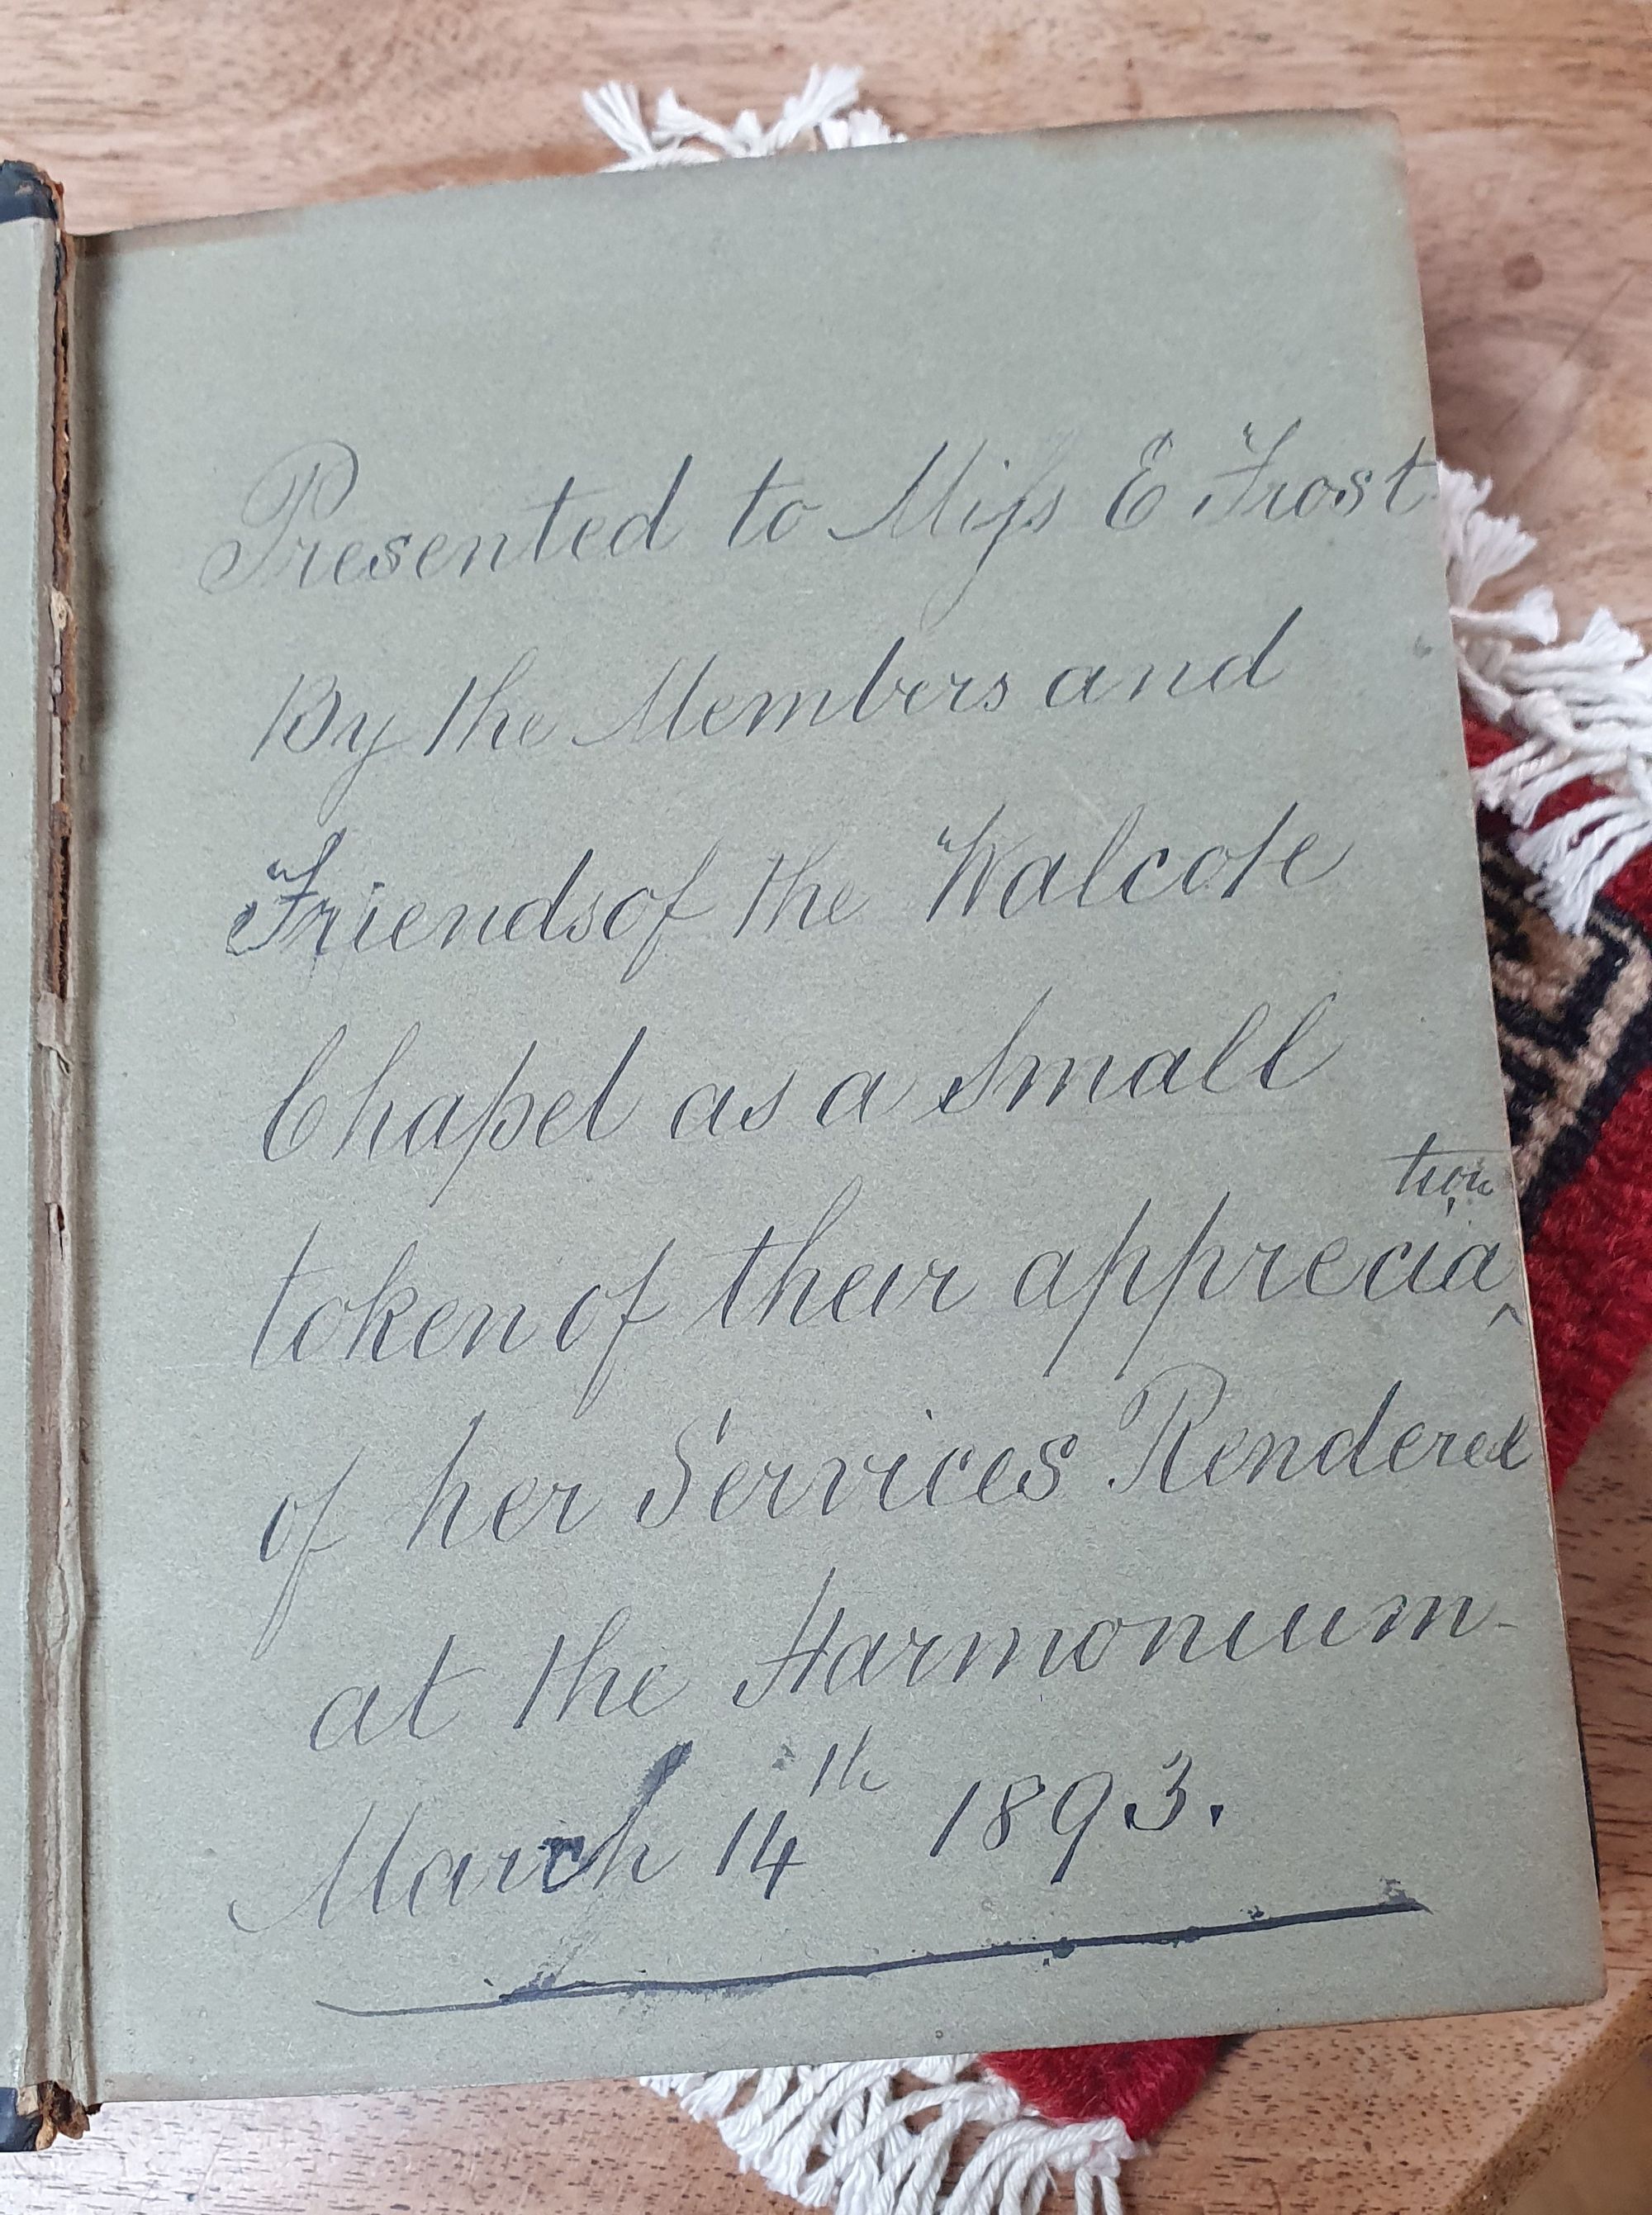 Presented to Miſs E Frost
By the Members and
Friends of the Walcote
Chapel as a Small
token of their apprecia^tion
of her Services Rendered
at the Harmonium-
March 14th 1893.